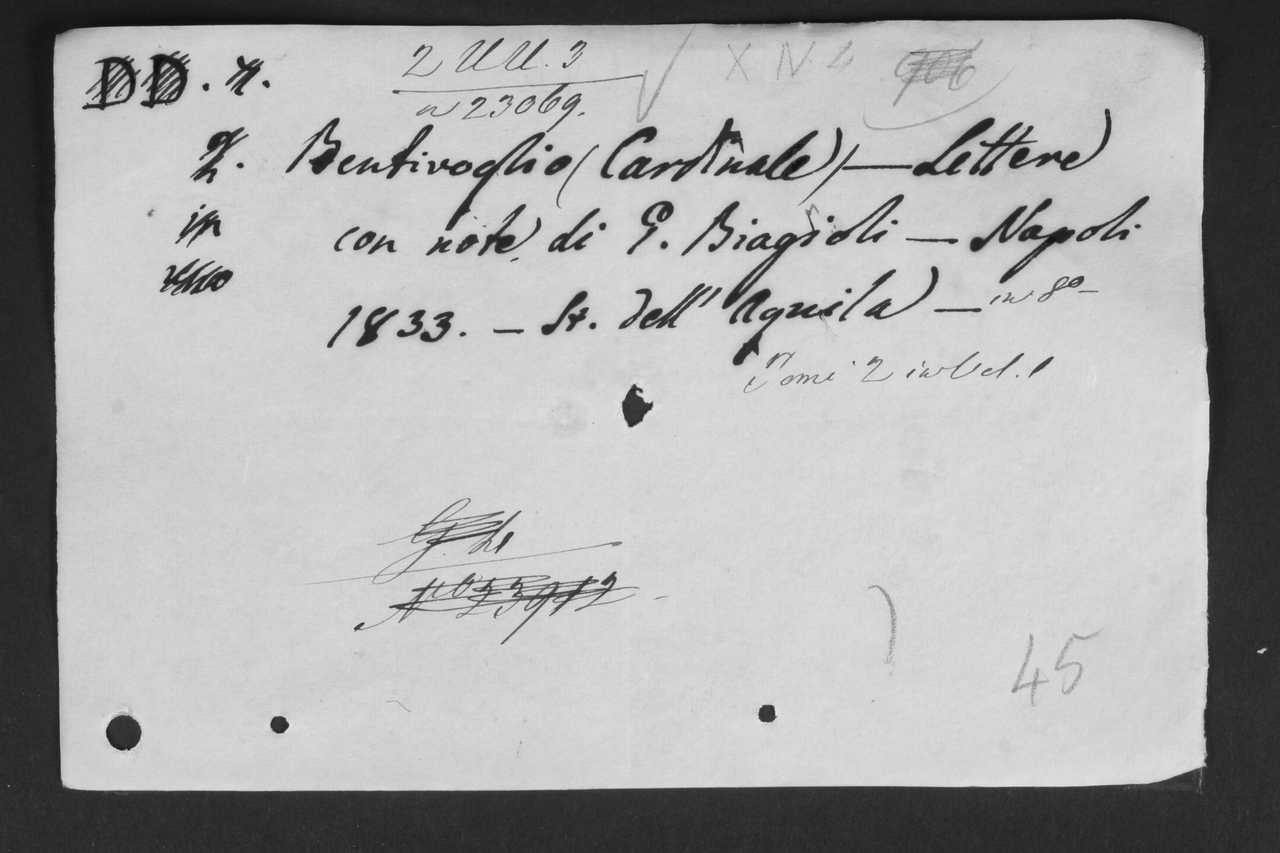 2 UU. 3
n 23069.
X N 2
Bentivoglio (Cardinale) — Lettere
in con note di G. Biagioli — Napoli
1833. — St. dell' Aquila — in 8º —
Tomi 2 in Vol. 1
45